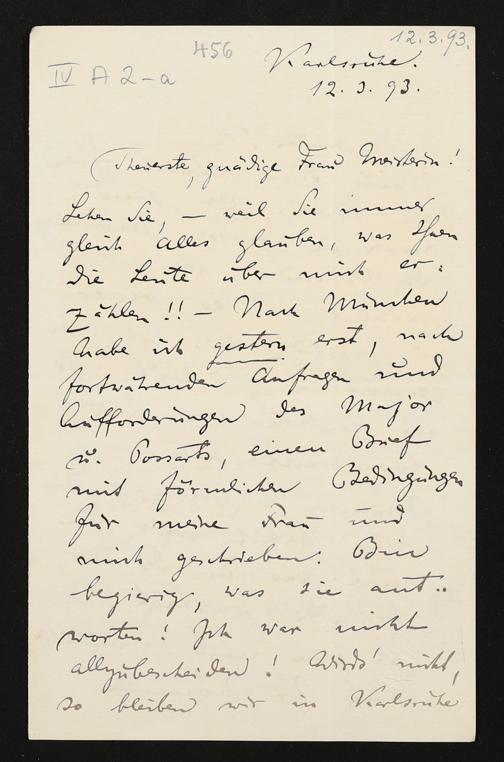 12.3.93.
456
IV A 2-a
Karlsruhe.
12. 3. 93.
Theuerste, gnädige Frau Meisterin!
Sehen Sie, — weil Sie immer
gleich Alles glauben, was Ihnen
die Leute über mich er-
zählen!! — Nach München
habe ich gestern erst, nach
fortwährenden Anfragen und
Aufforderungen des Major
u. Possarts, einen Brief
mit förmlichen Bedingungen
für meine Frau und
mich geschrieben. Bin
begierig, was sie ant-
worten! Ich war nicht
allzubescheiden! Wirds' nicht,
so bleiben wir in Karlsruhe